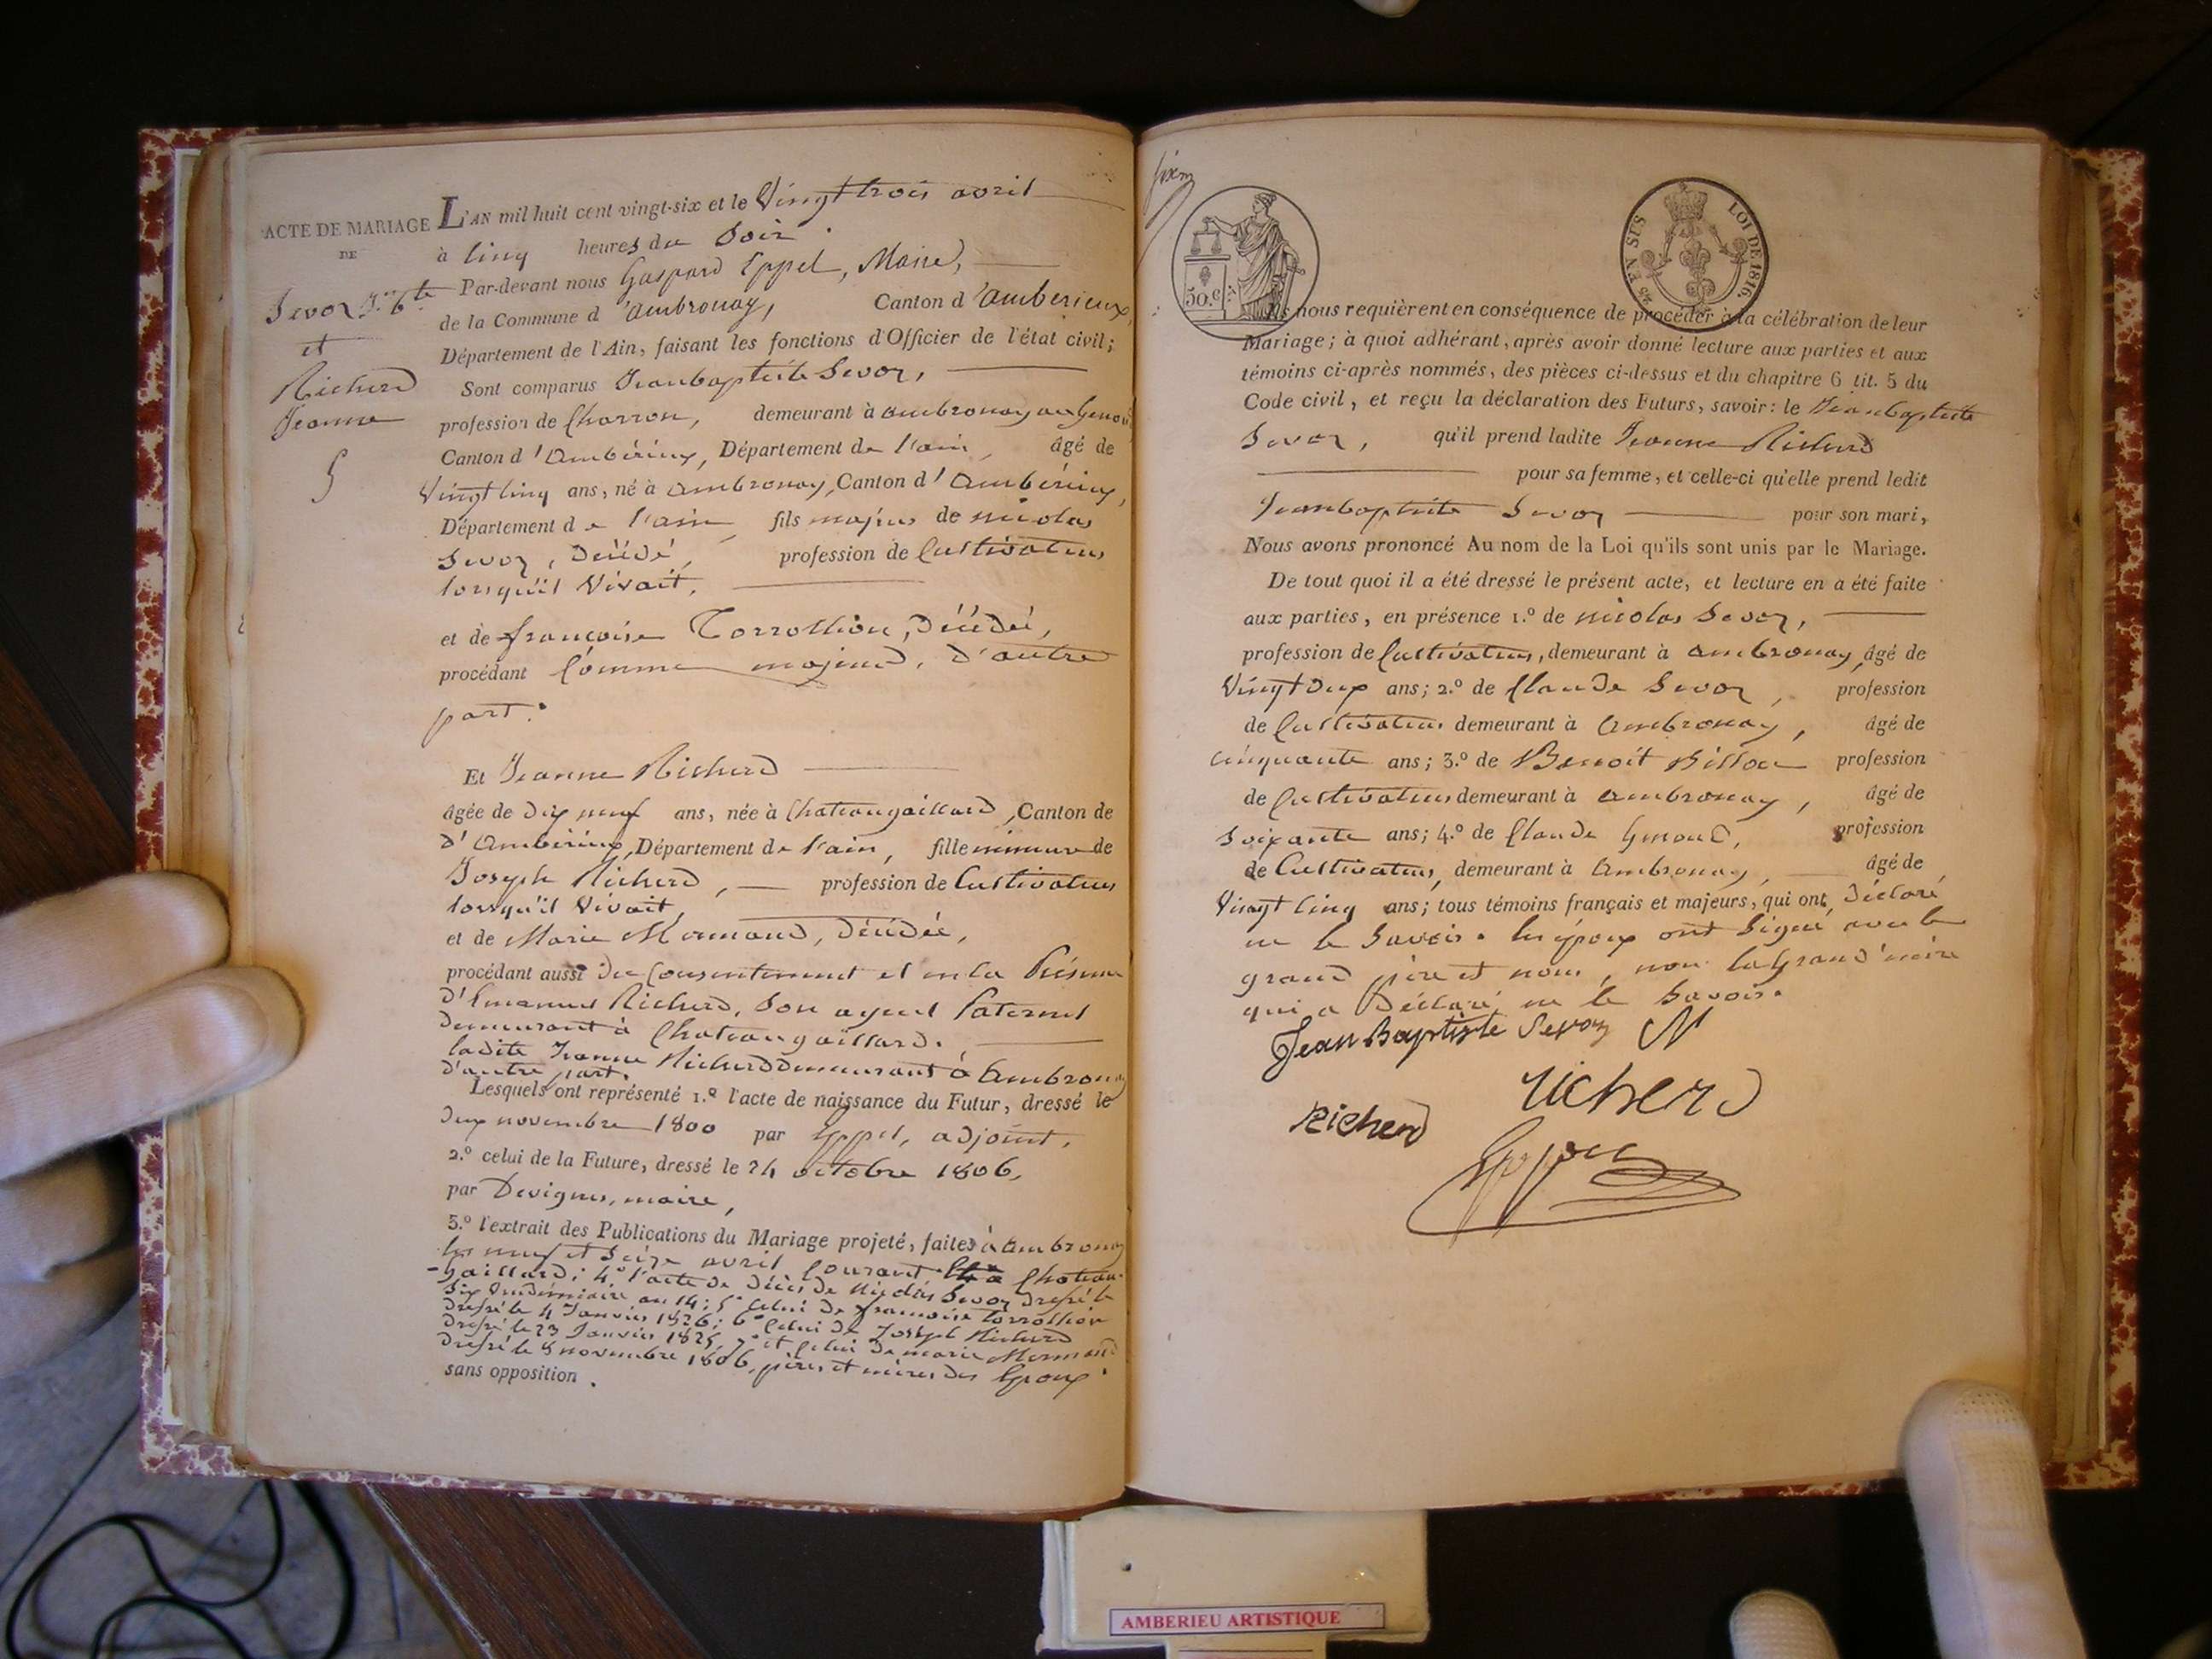 ACTE DE MARIAGE
DE
Sevoz J.n B.te
et
Richerd
Jeanne
5
L'AN mil huit cent vingt-six et le Vingt trois avril
à Cinq heures du Soir.
Par-devant nous Gaspard Eppel, Maire,
de la Commune d'ambronay, Canton d'ambérieux,
Département de l'Ain, faisant les fonctions d'Officier de l'état civil;
Sont comparus Jeanbaptiste Sevoz,
profession de Charron, demeurant à ambronay au Genoud
Canton d'Ambérieux, Département de l'ain, âgé de
Vingt Cinq ans, né à ambronay, Canton d'Ambérieux,
Département de l'ain fils majeur de nicolas
Sevoz, décédé, profession de Cultivateur
lorsqu'il Vivait,
et de françoise Torrollion, décédée,
procédant Comme majeur, d'autre
part.
Et Jeanne Richerd
âgée de dix neuf ans, née à Chateaugaillard, Canton de
d'Ambérieux, Département de l'ain, fille mineure de
Joseph Richerd, profession de Cultivateur
lorsqu'il Vivait,
et de Marie Mermand, décédée,
procédant aussi du Consentement et en la Présence
d'Emanuel Richerd, Son ayeul Paternel
demeurant à Chateaugaillard.
ladite Jeanne Richerd demeurant à Ambronay
d'autre part.
Lesquels ont représenté 1.º l'acte de naissance du Futur, dressé le
deux novembre 1800 par Eppel, adjoint,
2.º celui de la Future, dressé le 24 octobre 1806,
par Devignes, maire,
3.º l'extrait des Publications du Mariage projeté, faites à Ambronay
les neuf et Seize avril Courant à Chateau-
-gaillard; 4.º l'acte de décès de Nicolas Sevoz dressé le
Six Vendémiaire an 14; 5º Celui de françoise Torrollion
dressé le 4 Janvier 1826; 6º Celui de Joseph Richerd
dressé le 23 Janvier 1825, 7º et Celui de marie Mermand
dressé le 8 novembre 1806, pères et mères des Epoux.
sans opposition.
50.c
25 EN SUS
LOI DE 1816.
Ils nous requièrent en conséquence de procéder à la célébration de leur
Mariage; à quoi adhérant, après avoir donné lecture aux parties et aux
témoins ci-après nommés, des pièces ci-dessus et du chapitre 6 tit. 5 du
Code civil, et reçu la déclaration des Futurs, savoir: le Jeanbaptiste
Sevoz, qu'il prend ladite Jeanne Richerd
pour sa femme, et celle-ci qu'elle prend ledit
Jeanbaptiste Sevoz pour son mari,
Nous avons prononcé Au nom de la Loi qu'ils sont unis par le Mariage.
De tout quoi il a été dressé le présent acte, et lecture en a été faite
aux parties, en présence 1.º de nicolas Sevoz,
profession de Cultivateur, demeurant à ambronay, âgé de
Vingt deux ans; 2.º de Claude Sevoz, profession
de Cultivateur demeurant à Ambronay, âgé de
cinquante ans; 3.º de Benoit Billon profession
de Cultivateur demeurant à ambronay, âgé de
Soixante ans; 4.º de Claude Genoud, profession
de Cultivateur, demeurant à Ambronay, âgé de
Vingt Cinq ans; tous témoins français et majeurs, qui ont Déclaré
ne le Savoir. les époux ont Signé avec le
grand père et nous, non la Grand'mère
qui a Déclaré ne le Savoir.
Jean Baptiste Sevoz
richerd
Richerd
Eppel
AMBERIEU ARTISTIQUE